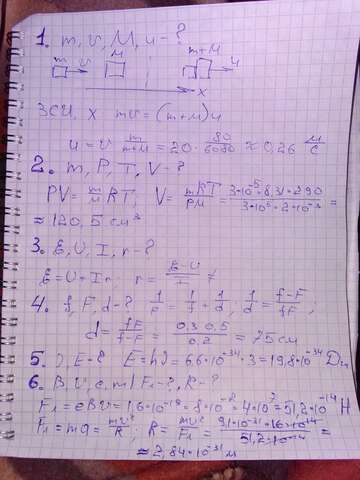 1. m, v, M, u - ?
m v M m+M u
x
ЗСИ, x mv = (m+M)u
u = v m/(m+M) = 20 · 80/6080 ≈ 0,26 м/с
2. m, P, T, V - ?
PV = m/μ RT, V = mRT/(Pμ) = (3·10⁻⁵·8,31·290)/(3·10⁵·2·10⁻³) =
≈ 120,5 см³
3. ℰ, U, I, r - ?
ℰ = U + Ir; r = (ℰ-U)/I
4. f, F, d - ? 1/F = 1/f + 1/d; 1/d = (f-F)/(fF);
d = fF/(f-F) = (0,3·0,5)/0,2 = 75 см
5. ν, E - ? E = hν = 6,6·10⁻³⁴·3 = 19,8·10⁻³⁴ Дж
6. B, V, e, m | Fл - ?, R - ?
Fл = eBV = 1,6·10⁻¹⁹·8·10⁻²·4·10⁷ = 51,2·10⁻¹⁴ Н
Fл = ma = mv²/R; R = mv²/Fл = (9,1·10⁻³¹·16·10¹⁴)/(51,2·10⁻¹⁴) =
≈ 2,84·10⁻³¹ м